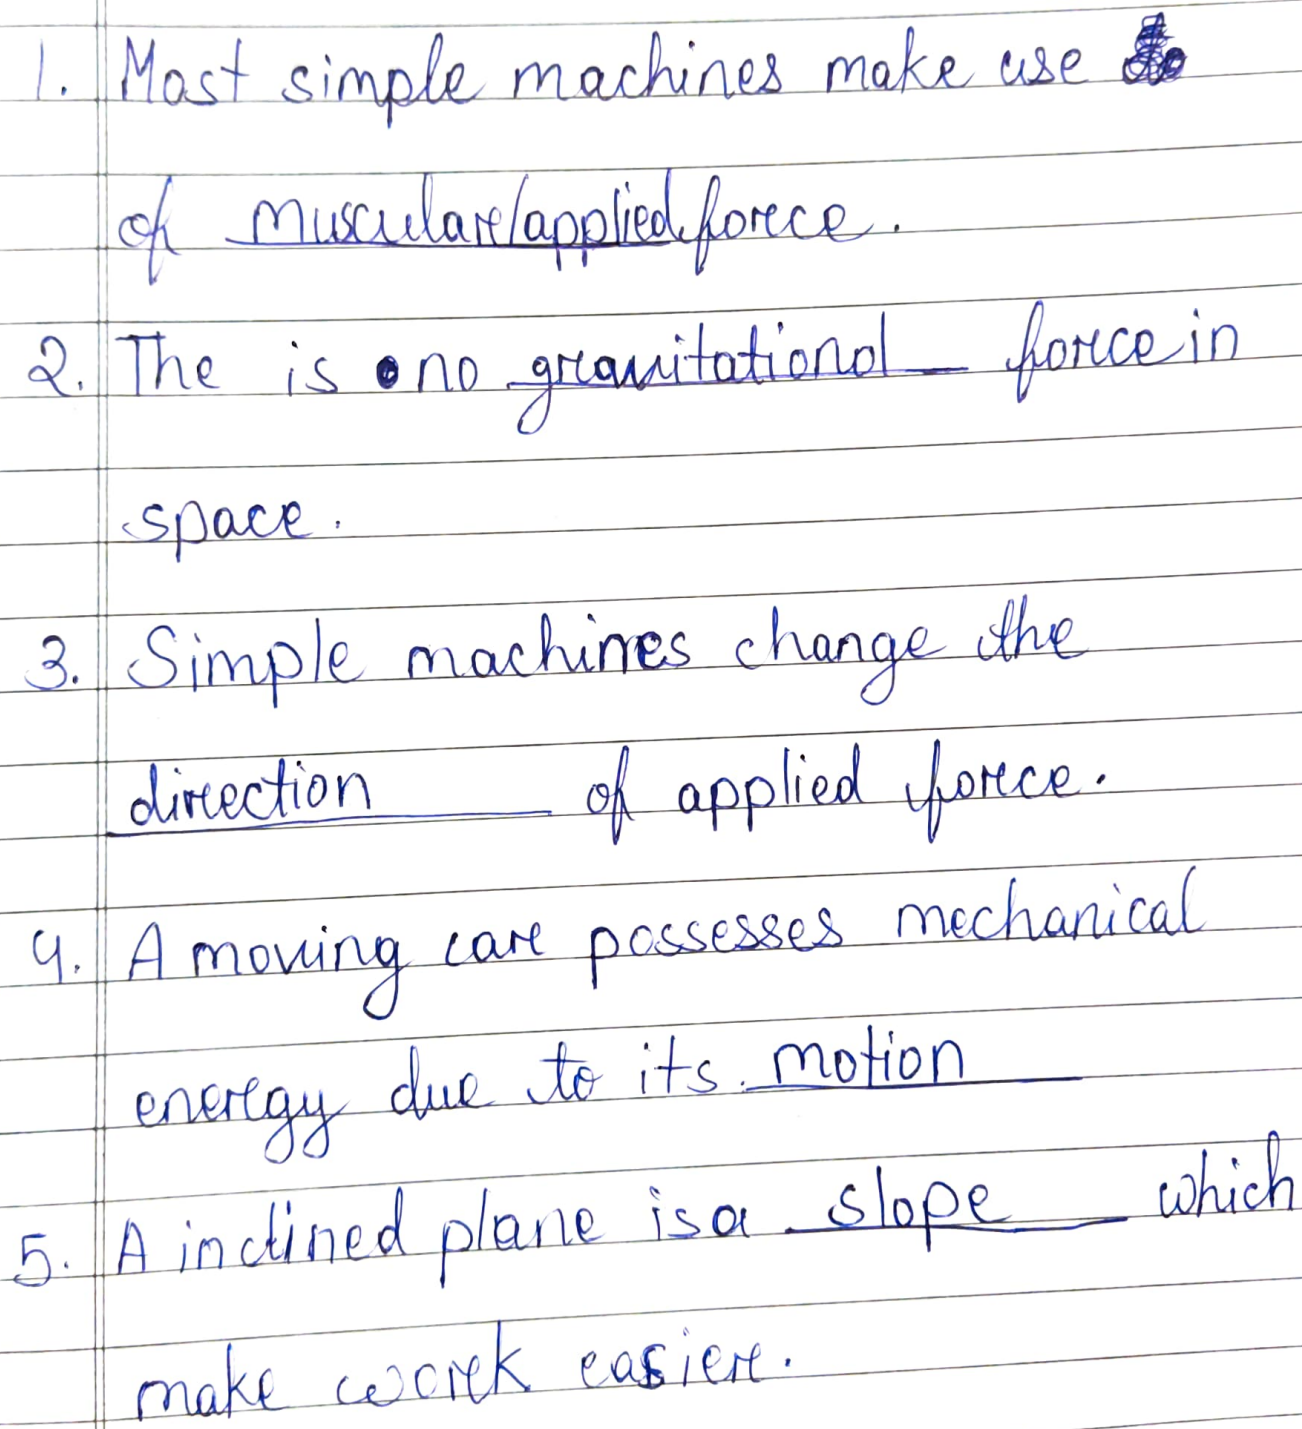 1. Most simple machines make use
of muscular/applied force.
2. The is no gravitational force in
space.
3. Simple machines change the
direction of applied force.
4. A moving car possesses mechanical
energy due to its motion
5. A inclined plane is a slope which
make work easier.